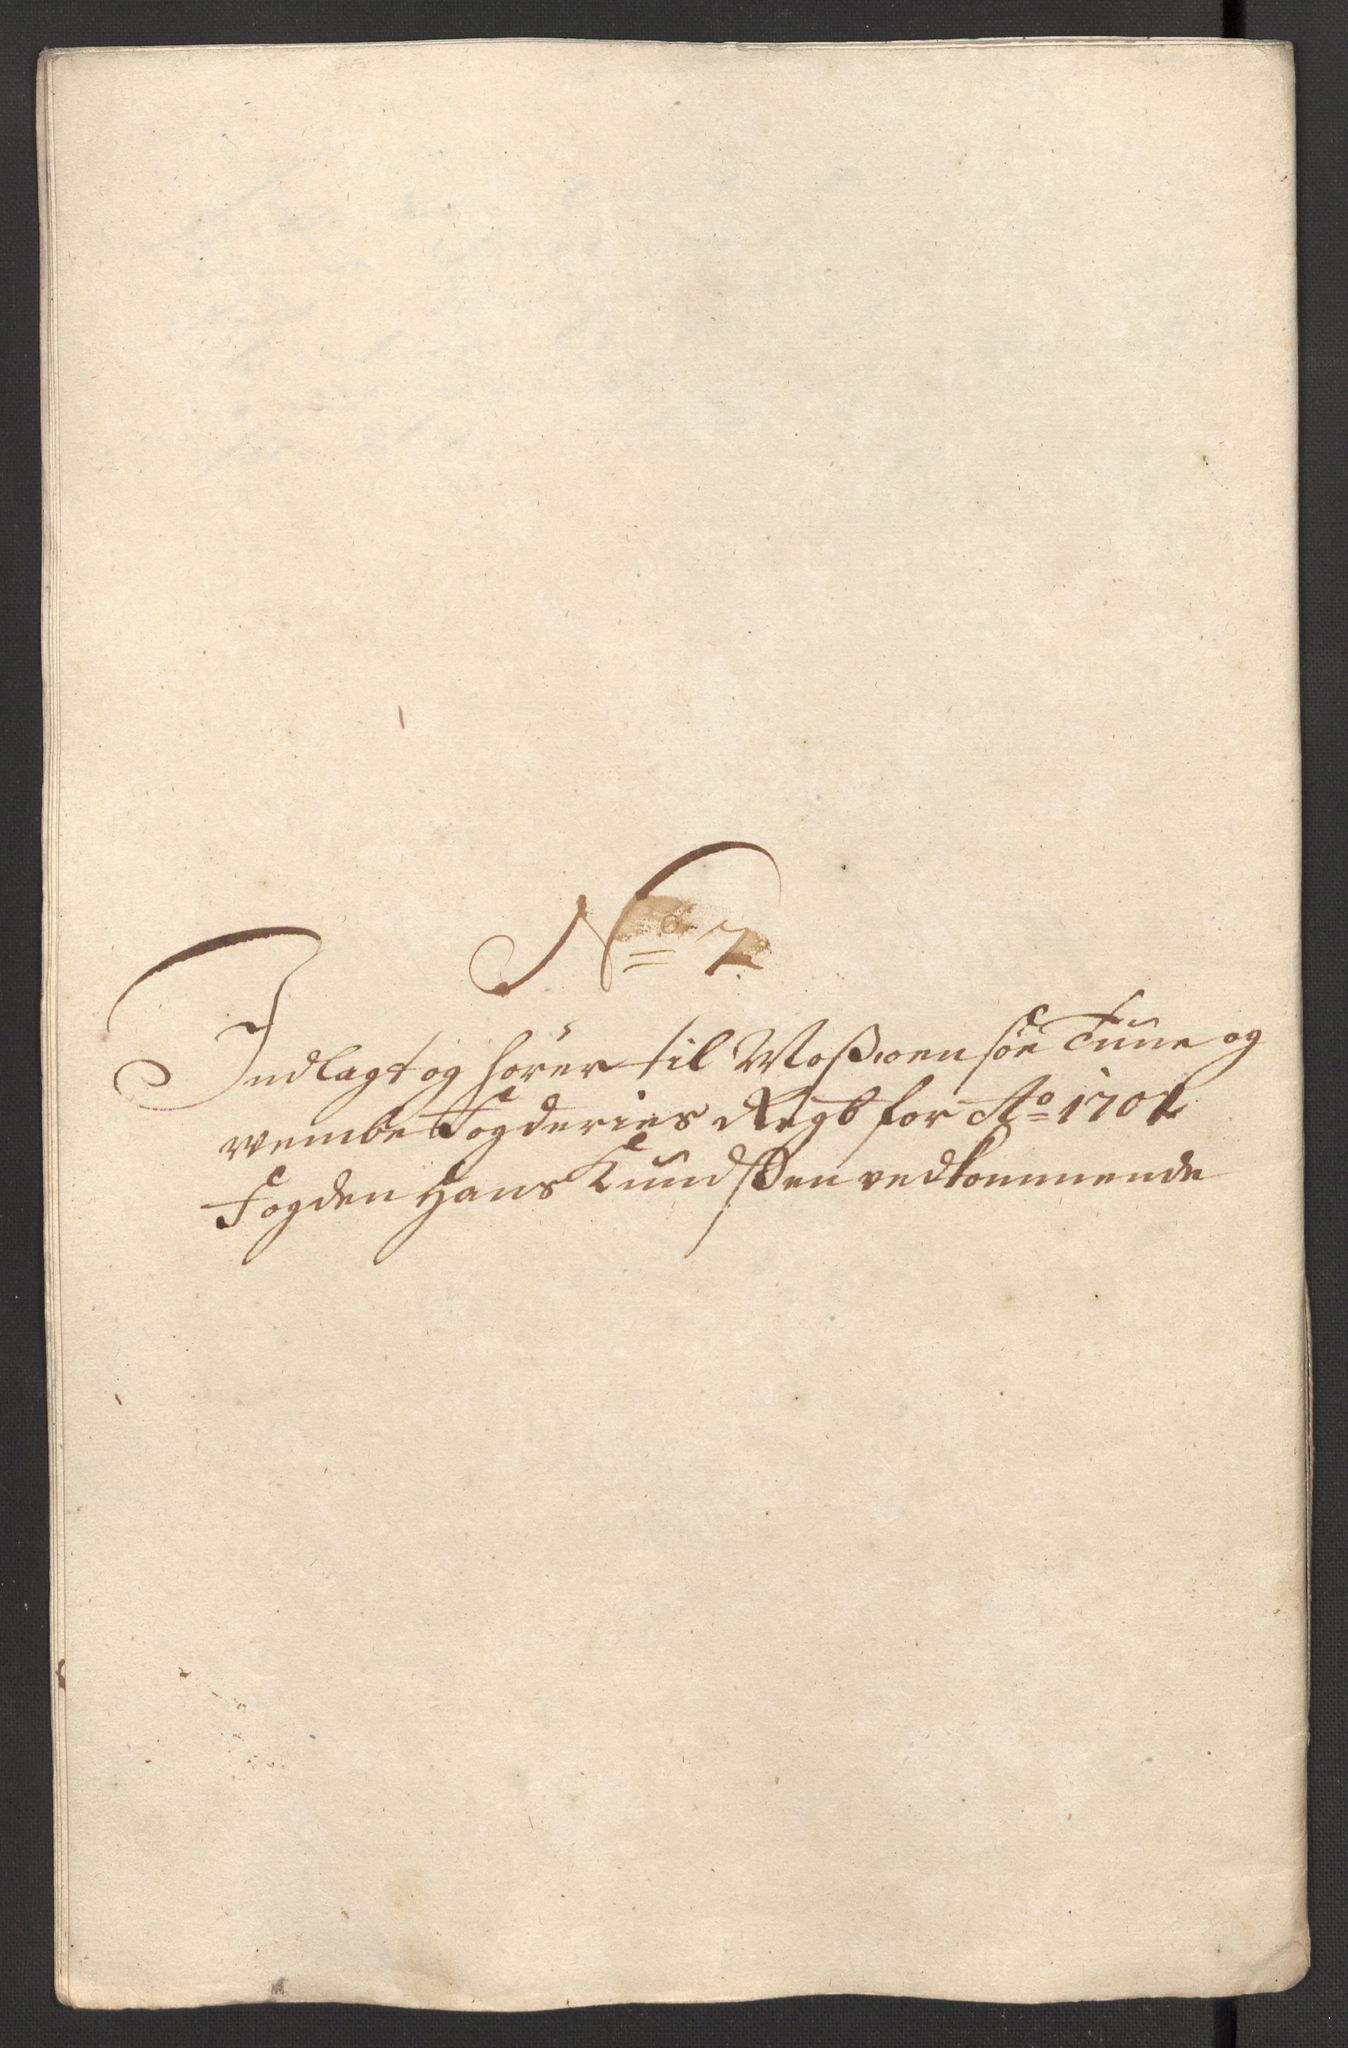 No 7
Indlagt og hører til Moss onsøe Tune og
vembe Fogderies Regsb for Ao 1701
Fogden Hans Knudssen vedkommende